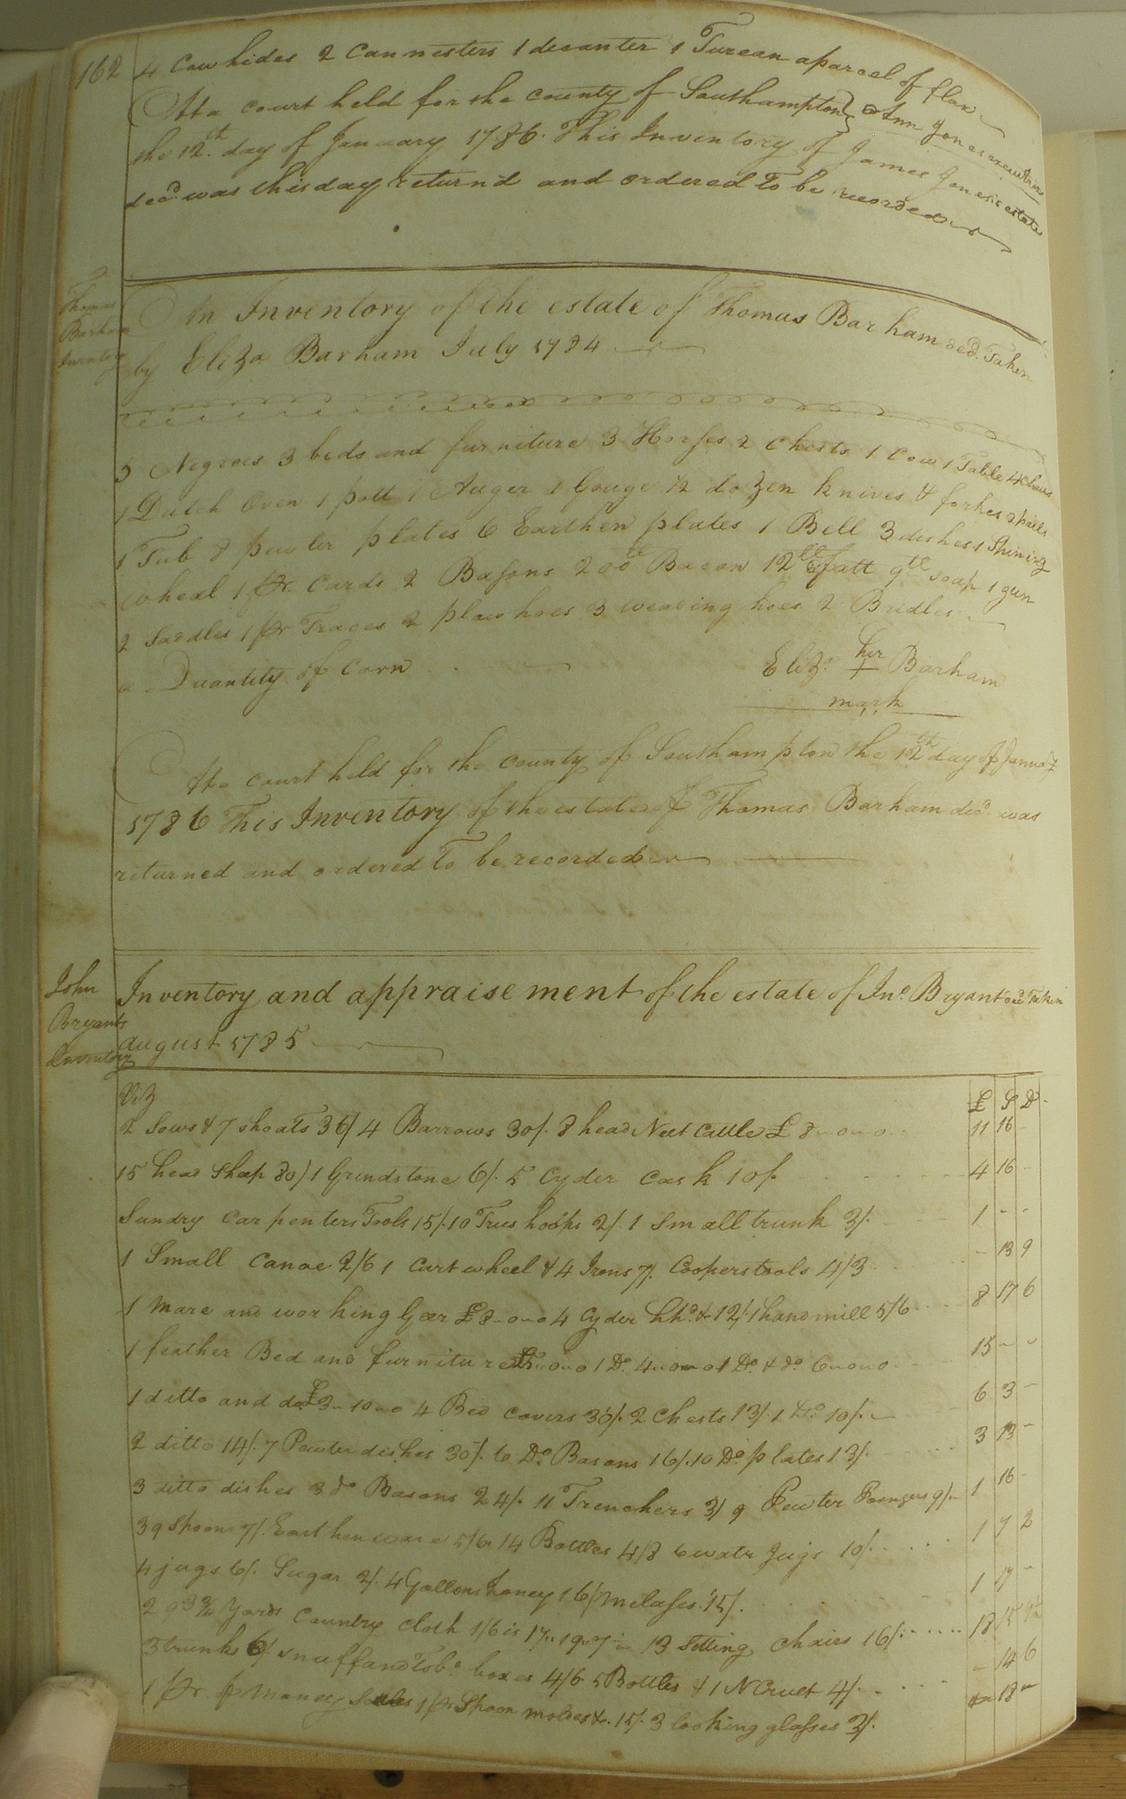 162
4 Cowhides 2 Cannesters 1 decanter 1 Turean aparcel of flax
Ann Jones executrix
Atta court held for the county of Southampton
the 12th day of January 1786. This Inventory of James Jones's estate
decd. was this day return'd and ordered To be recorded
Thomas
Barham
Inventory
An Inventory of the estate of Thomas Barham decd. Taken
by Eliza Barham July 1784
5 Negroes 3 beds and furniture 3 Horses 2 Chests 1 Cow 1 Table 4 Chairs
1 Dutch Oven 1 pott 1 Auger 1 Gouge 1/2 dozen knives & forkes 2 pails
1 Tub 8 pewter plates 6 Earthen plates 1 Bell 3 dishes 1 Spining
wheal 1 pr. Cards 2 Basons 200 Bacon 12 fatt 9 soap 1 gun
2 Saddles 1 pr Traces 2 plow hoes 3 weading hoes 2 Bridles
a Quantity of Corn
Eliza. her Barham
mark
Atta court held for the county of Southampton the 12th day of Janua'y
1786 This Inventory of the estate of Thomas Barham decd. was
returned and ordered To be recorded
John
Bryants
Inventory
Inventory and appraisement of the estate of Jno. Bryant decd Taken
august 1785
Viz
£ S D
2 Sows & 7 shoats 36/ 4 Barrows 30/. 8 head Neet Cattle £ 8-0-0 11 16 -
15 head Sheep 80/ 1 Grindstone 6/. 5 Cyder Cask 10/. 4 16 -
Sundry Carpenters Tools 15/. 10 Trus hoops 2/. 1 Small trunk 3/. 1 - -
1 Small Canoe 2/6 1 Cart wheel & 4 Irons 7/. Coopers tools 4/3 - 13 9
1 Mare and working Gear £8-0-0 4 Cyder hhds. 12/. 1 hand mill 5/6 8 17 6
1 feather Bed and furniture £5-0-0 1 Do. 4-0-0 1 Do. & do. 6-0-0 15 - -
1 ditto and do. £3-10-0 4 Bed covers 30/. 2 Chests 13/. 1 Do. 10/. 6 3 -
2 ditto 14/. 7 Pewter dishes 30/. 6 Do. Basons 16/. 10 Do. plates 13/. 3 13 -
3 ditto dishes 3 do Basons 24/. 11 Trenchers 3/ 9 Pewter 9/ 1 16 -
39 Spoons 7/. Earthen ware 5/6 14 Bottles 4/8 6 watr Jugs 10/. 1 7 2
4 jugs 6/. Sugar 2/. 4 Gallons honey 16/ Melases 15/. 1 19 -
yards Country cloth 1/6 is 17-19-7 13 Setting Chairs 16/. 18 15
3 trunks 6/ snuff and Tobo. boxes 4/6 5 Bottles & 1 Cruet 4/. - 14 6
1 pr. money Scales 1 pr Spoon moldes &c. 15/. 3 looking glasses 3/. 18 -